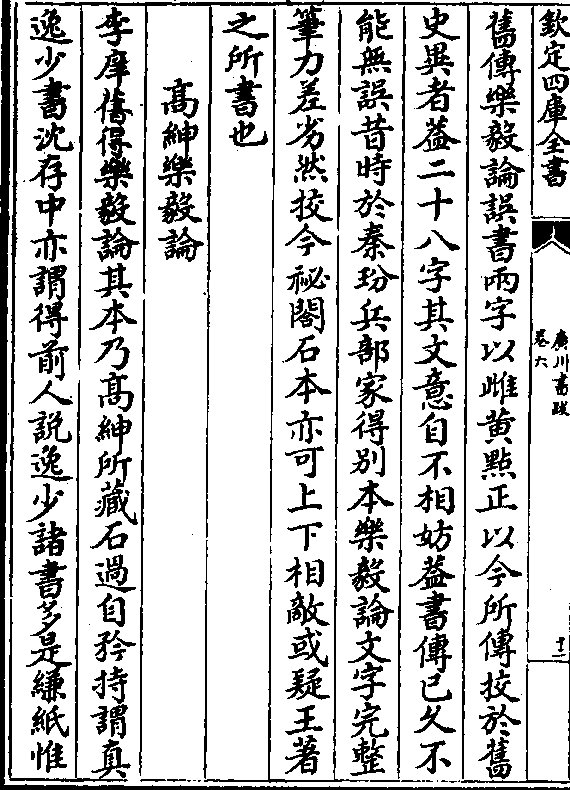 欽定四庫全書
廣川書跋
卷六
十二
舊傳樂毅論誤書兩字以雌黄點正以今所傳挍於舊
史異者葢二十八字其文意自不相妨葢書傳已久不
能無誤昔時於秦玢兵部家得别本樂毅論文字完整
筆力差劣然挍今祕閣石本亦可上下相敵或疑王著
之所書也
高紳樂毅論
李庠舊得樂毅論其本乃髙紳所藏石過自矜持謂真
逸少書沈存中亦謂得前人説逸少諸書多是縑紙惟